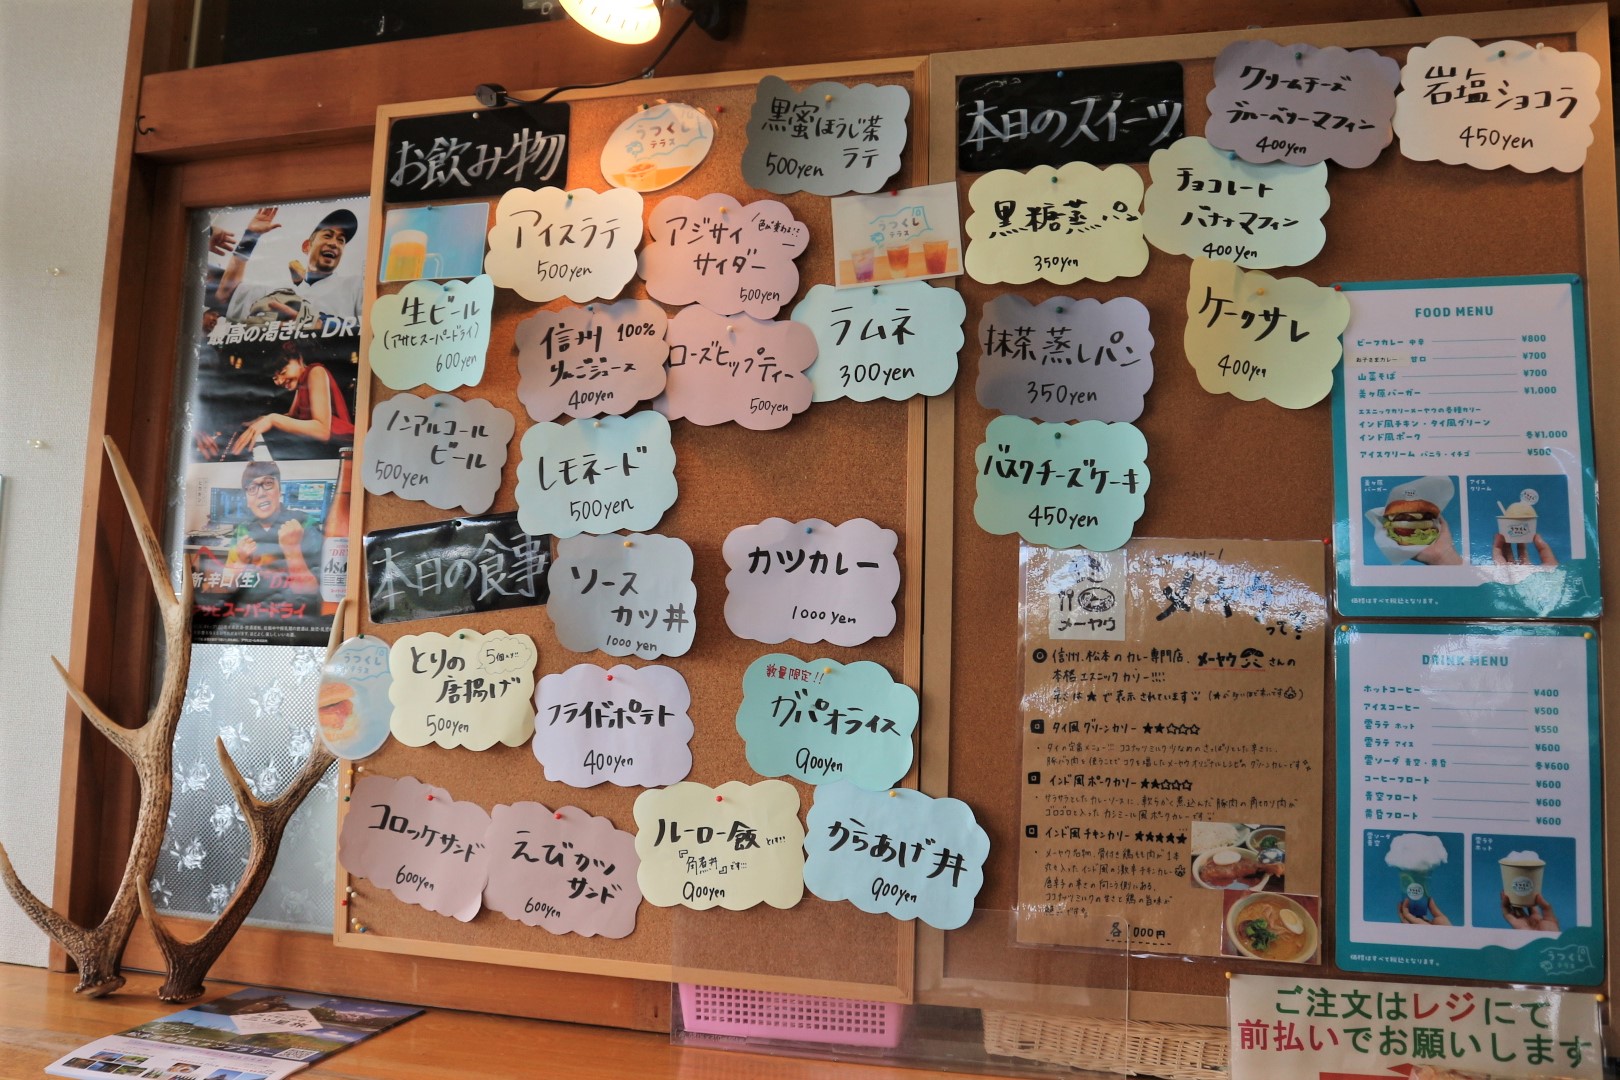 お飲み物
うつくし
テラス
黒蜜ほうじ茶
ラテ
500yen
アイスラテ
500yen
アジサイ
サイダー
500yen
うつくし
テラス
生ビール
(アサヒスーパードライ)
600yen
信州 100%
りんごジュース
400yen
ローズヒップティー
500yen
ラムネ
300yen
ノンアルコール
ビール
500yen
レモネード
500yen
本日の食事
ソース
カツ丼
1000yen
カツカレー
1000yen
とりの
唐揚げ
500yen
フライドポテト
400yen
数量限定!!
ガパオライス
900yen
コロッケサンド
600yen
えびカツ
サンド
600yen
ルーロー飯
900yen
からあげ丼
900yen
本日のスイーツ
クリームチーズ
ブルーベリーマフィン
400yen
岩塩ショコラ
450yen
黒糖蒸パン
350yen
チョコレート
バナナマフィン
400yen
抹茶蒸しパン
350yen
ケークサレ
400yen
バスクチーズケーキ
450yen
メーヤウ
信州、松本のカレー専門店、メーヤウさんの
本格エスニックカリー!!!!
辛さは★で表示されています
タイ風グリーンカリー ★★☆☆☆
インド風ポークカリー ★★☆☆☆
インド風チキンカリー ★★★★★
FOOD MENU
ビーフカレー 中辛 ¥800
お子さまカレー 甘口 ¥700
山菜そば ¥700
美ヶ原バーガー ¥1,000
エスニックカリーメーヤウの各種カリー
インド風チキン・タイ風グリーン
インド風ポーク 各¥1,000
アイスクリーム バニラ・イチゴ ¥500
美ヶ原
バーガー
アイス
クリーム
価格はすべて税込となります。
DRINK MENU
ホットコーヒー ¥400
アイスコーヒー ¥500
雲ラテ ホット ¥550
雲ラテ アイス ¥600
雲ソーダ 青空・黄昏 各¥600
コーヒーフロート ¥600
青空フロート ¥600
黄昏フロート ¥600
雲ソーダ
青空
雲ラテ
ホット
価格はすべて税込となります。
うつくし
テラス
ご注文はレジにて
前払いでお願いします
最高の渇きに、DRY
スーパードライ